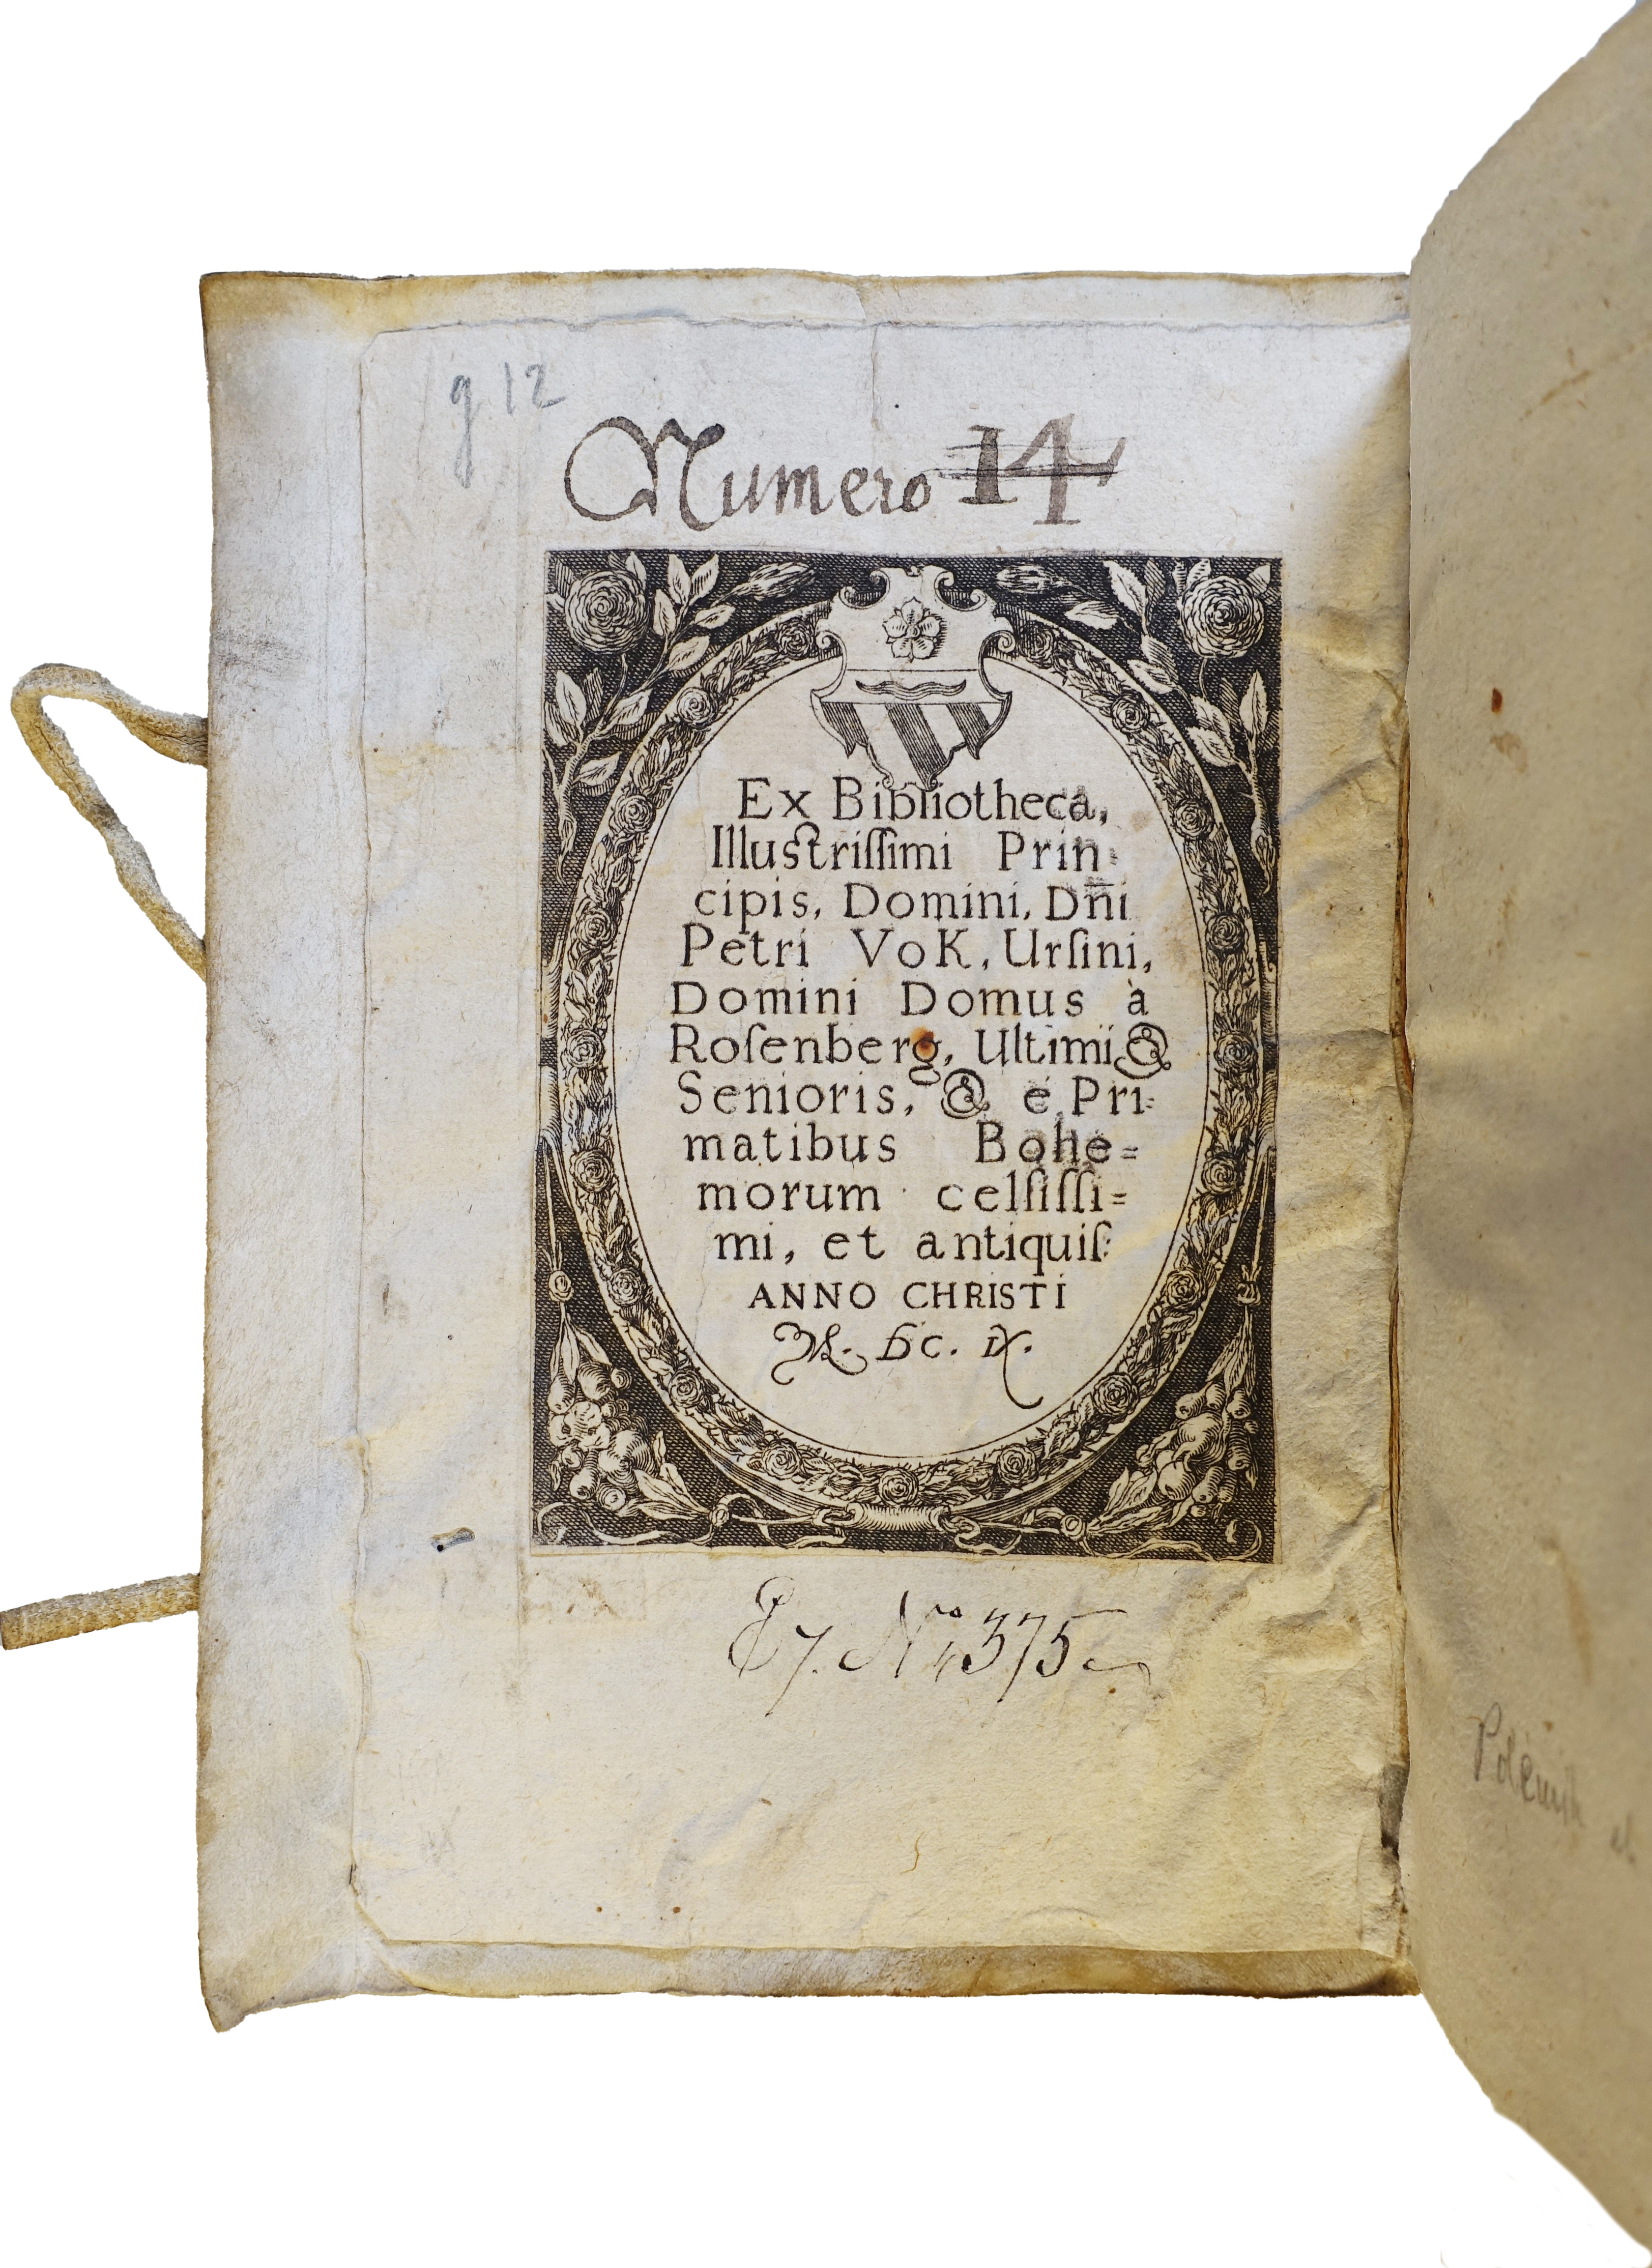 g 12
Numero 14
Ex Bibliotheca,
Illustriſſimi Prin:
cipis, Domini, Dñi
Petri VoK, Urſini,
Domini Domus à
Roſenberg, Ultimi, &
Senioris, & é Pri:
matibus Bohe=
morum celſiſſi=
mi, et antiquiſ:
ANNO CHRISTI
M. DC. IX.
No 375